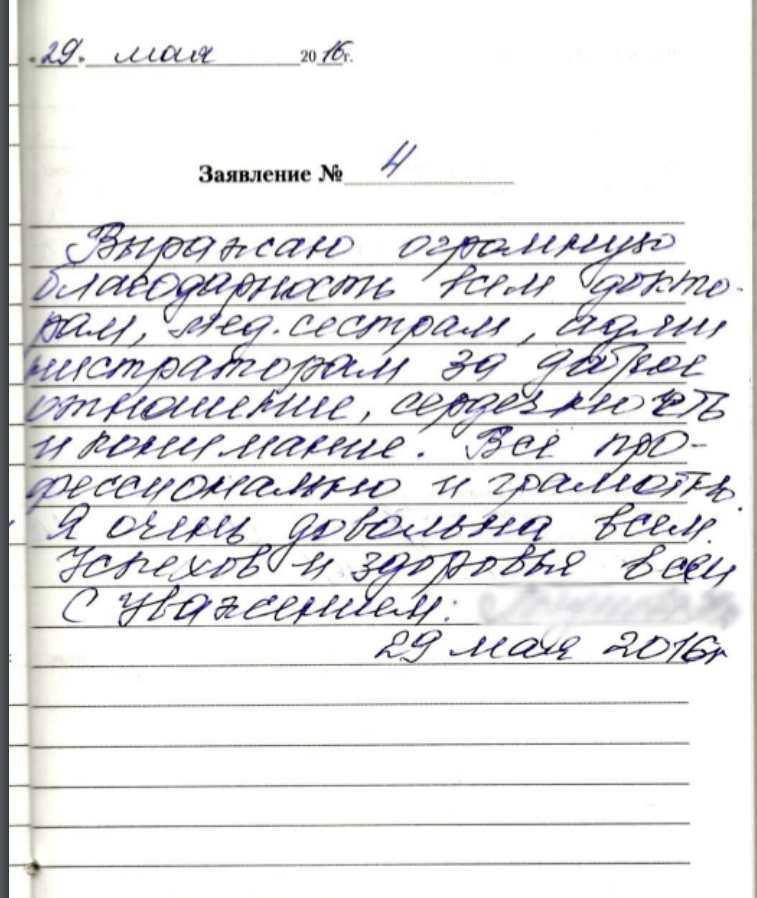 «29» мая 2016г.
Заявление № 4
Выражаю огромную
благодарность всем докто-
рам, мед.сестрам, адми
нистраторам за доброе
отношение, сердечность
и понимание. Всё про-
фессионально и грамотно.
Я очень довольна всем.
Успехов и здоровья всем
С уважением:
29 мая 2016г